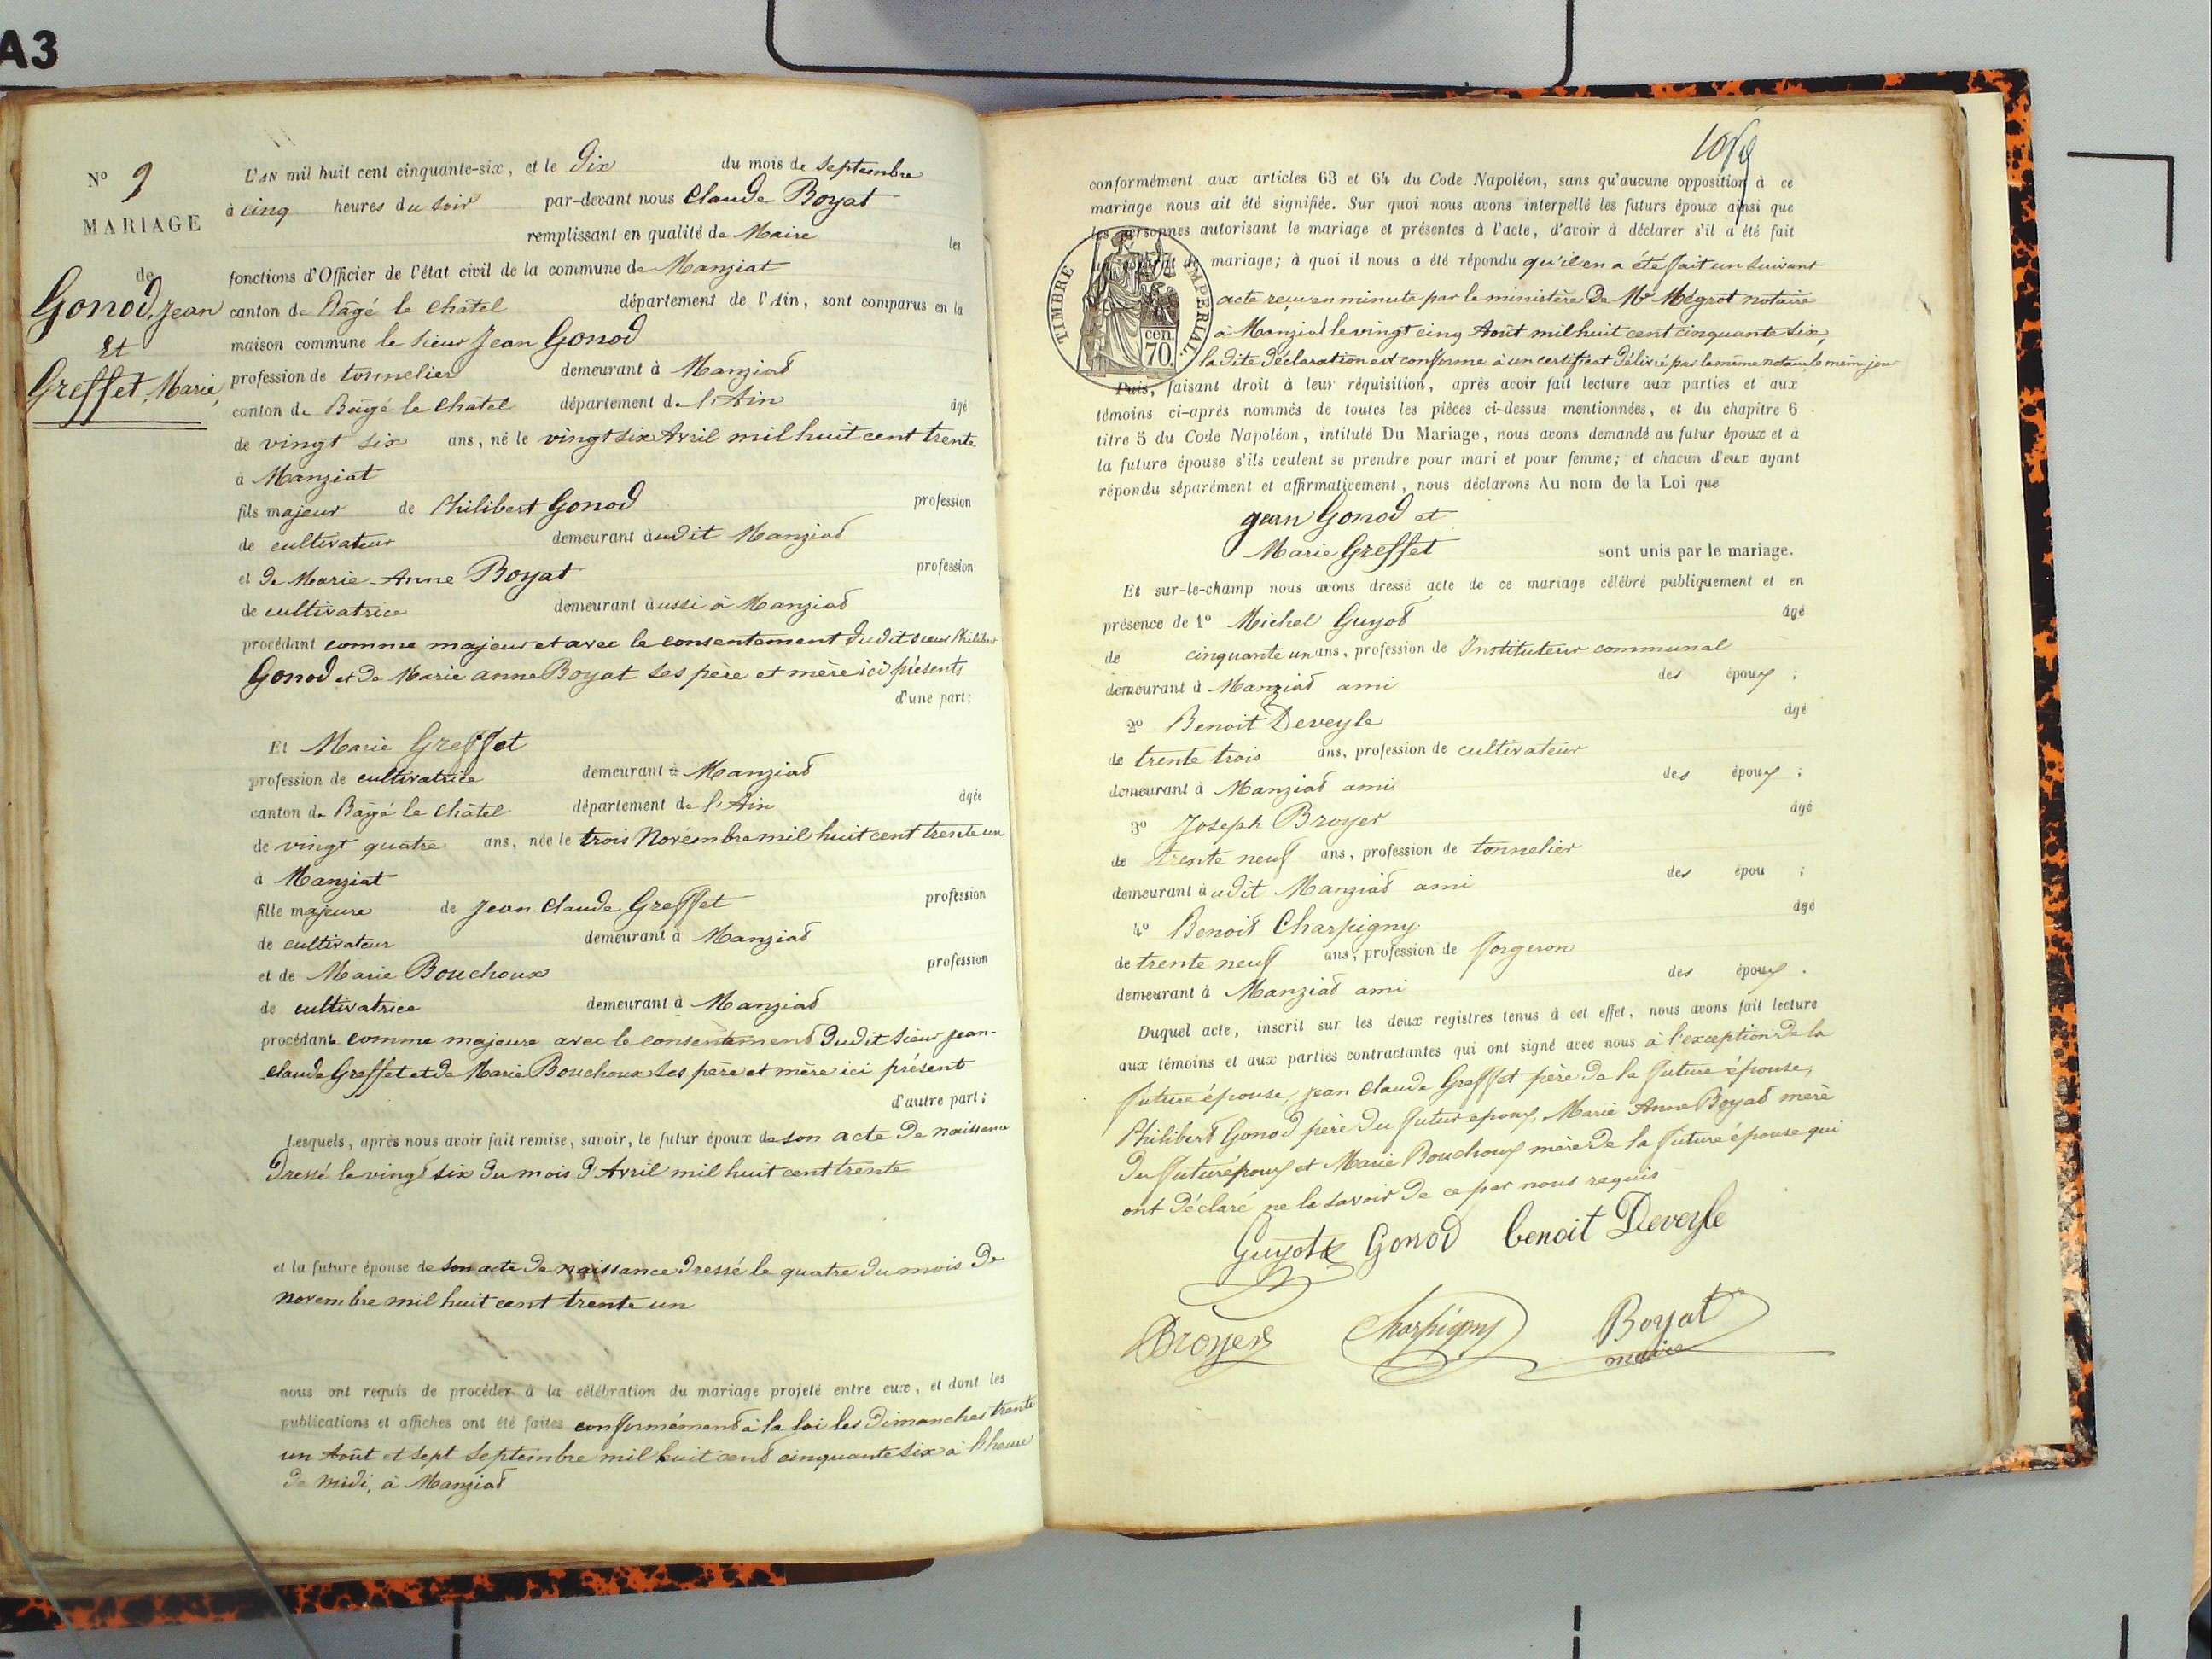 A3
N° 9
MARIAGE
de
Gonod, Jean
Et
Greffet, Marie,
L'AN mil huit cent cinquante-six, et le Dix du mois de Septembre
à cinq heures du soir par-devant nous Claude Boyat
remplissant en qualité de Maire les
fonctions d'Officier de l'état civil de la commune de Manziat
canton de Bâgé le Châtel département de l'Ain, sont comparus en la
maison commune le sieur Jean Gonod
profession de tonnelier demeurant à Manziat
canton de Bâgé le Chatel département de l'Ain âgé
de vingt six ans, né le vingt six Avril mil huit cent trente
à Manziat
fils majeur de Philibert Gonod profession
de cultivateur demeurant audit Manziat
et de Marie-Anne Boyat profession
de cultivatrice demeurant aussi à Manziat
procédant comme majeur et avec le consentement dudit sieur Philibert
Gonod et de Marie anne Boyat ses père et mère ici présents
d'une part;
Et Marie Greffet
profession de cultivatrice demeurant à Manziat
canton de Bâgé le Châtel département de l'Ain âgée
de vingt quatre ans, née le trois Novembre mil huit cent trente un
à Manziat
fille majeure de Jean-Claude Greffet profession
de cultivateur demeurant à Manziat
et de Marie Bouchoux profession
de cultivatrice demeurant à Manziat
procédant comme majeure avec le consentement dudit sieur Jean-
Claude Greffet et de Marie Bouchoux ses père et mère ici présent
d'autre part;
Lesquels, après nous avoir fait remise, savoir, le futur époux de son acte de naissance
Dressé le vingt six du mois d'Avril mil huit cent trente
et la future épouse de son acte de naissance dressé le quatre du mois de
novembre mil huit cent trente un
nous ont requis de procéder à la célébration du mariage projeté entre eux, et dont les
publications et affiches ont été faites conformément à la loi les Dimanches trente
un Août et sept septembre mil huit cent cinquante six à l'heure
de midi, à Manziat
conformément aux articles 63 et 64 du Code Napoléon, sans qu'aucune opposition à ce
mariage nous ait été signifiée. Sur quoi nous avons interpellé les futurs époux ainsi que
les personnes autorisant le mariage et présentes à l'acte, d'avoir à déclarer s'il a été fait
de mariage; à quoi il nous a été répondu qu'il en a été fait un suivant
acte reçu en minute par le ministère de Me Mégrot notaire
à Manziat le vingt cinq Août mil huit cent cinquante six,
la dite déclaration est conforme à un certificat délivré par le même notaire le même jour
TIMBRE IMPERIAL.
cen.
70.
Puis, faisant droit à leur réquisition, après avoir fait lecture aux parties et aux
témoins ci-après nommés de toutes les pièces ci-dessus mentionnées, et du chapitre 6
titre 5 du Code Napoléon, intitulé Du Mariage, nous avons demandé au futur époux et à
la future épouse s'ils veulent se prendre pour mari et pour femme; et chacun d'eux ayant
répondu séparément et affirmativement, nous déclarons Au nom de la Loi que
Jean Gonod et
Marie Greffet sont unis par le mariage.
Et sur-le-champ nous avons dressé acte de ce mariage célébré publiquement et en
présence de 1° Michel Guyot âgé
de cinquante un ans, profession de Instituteur communal
demeurant à Manziat ami des époux;
2° Benoit Deveyle âgé
de trente trois ans, profession de cultivateur
demeurant à Manziat ami des époux;
3° Joseph Broyer âgé
de trente neuf ans, profession de tonnelier
demeurant audit Manziat ami des épou;
4° Benoit Charpigny âgé
de trente neuf ans, profession de forgeron
demeurant à Manziat ami des époux.
Duquel acte, inscrit sur les deux registres tenus à cet effet, nous avons fait lecture
aux témoins et aux parties contractantes qui ont signé avec nous à l'exception de la
future épouse, Jean Claude Greffet père de la future épouse,
Philibert Gonod père du futur époux, Marie Anne Boyat mère
du futur époux et Marie Bouchoux mère de la future épouse qui
ont déclaré ne le savoir de ce par nous requis
Guyot Gonod benoit Deveyle
Broyer Charpigny Boyat
maire